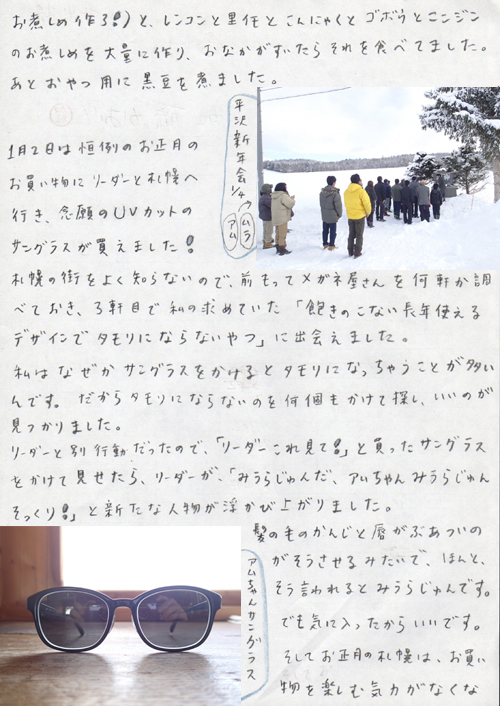 お煮しめ作る!)と、レンコンと里芋とこんにゃくとゴボウとニンジン
のお煮しめを大量に作り、おなかがすいたらそれを食べてました。
あとおやつ用に黒豆を煮ました。
平沢新年会1/4
ムラ
アム
1月2日は恒例のお正月の
お買い物にリーダーと札幌へ
行き、念願のUVカットの
サングラスが買えました!
札幌の街をよく知らないので、前もってメガネ屋さんを何軒か調
べておき、3軒目で私の求めていた「飽きのこない長年使える
デザインでタモリにならないやつ」に出会えました。
私はなぜかサングラスをかけるとタモリになっちゃうことが多い
んです。だからタモリにならないのを何個もかけて探し、いいのが
見つかりました。
リーダーと別行動だったので、「リーダーこれ見て!」と買ったサングラス
をかけて見せたら、リーダーが、「みうらじゅんだ、アムちゃんみうらじゅん
そっくり!」と新たな人物が浮かび上がりました。
髪の毛のかんじと唇がぶあついの
がそうさせるみたいで、ほんと、
そう言われるとみうらじゅんです。
でも気に入ったからいいです。
そしてお正月の札幌は、お買い
物を楽しむ気力がなくな
アムちゃんサングラス